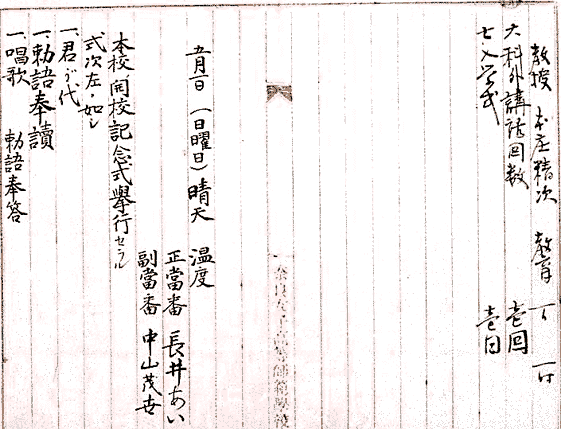 教授 本庄精次 教育
六科外講話回数 壱回
七入学式 壱日
奈良女子高等師範學校
五月一日（日曜日）晴天 温度
正當番 長井あい
副當番 中山茂世
本校開校記念式擧行セラル
式次左ノ如シ
一、君が代
一、勅語奉讀
一、唱歌 勅語奉答